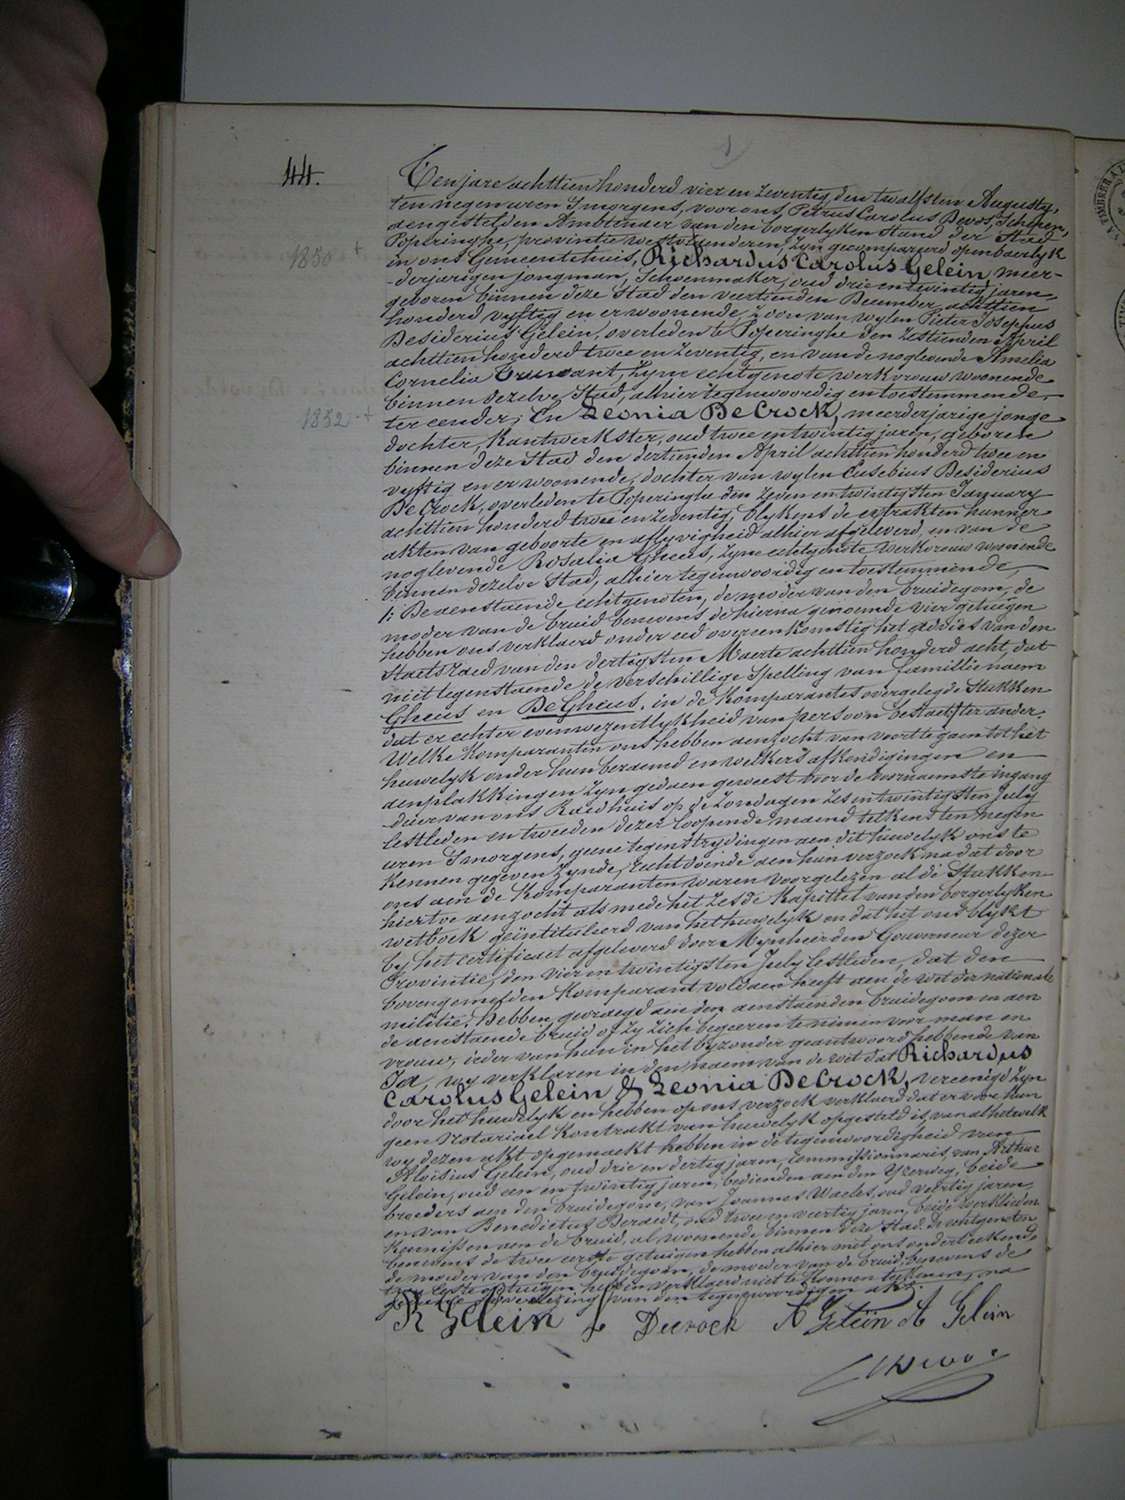 44.
Ten jare achttien honderd vier en zeventig, den twaalfsten Augusty,
ten negen uren 's morgens, voor ons, Petrus Carolus Devos, Schepen,
aengestelden Ambtenaer van den borgerlyken stand der Stad
Poperinghe, provintie Westvlaenderen, zyn gecompareerd openbaerlyk
in ons Gemeentehuis, Richardus Carolus Gelein, meer-
1850 +
-derjarigen jongman, Schoenmaker, oud drie en twintig jaren,
geboren binnen deze Stad den veertienden December achttien
honderd vyftig en er woonende, zoon van wylen Pieter Josephus
Desiderius Gelein, overleden te Poperinghe den zestienden April
achttien honderd twee en zeventig, en van de noglevende Amelia
Cornelia zyne echtgenote, werkvrouw woonende
binnen dezelve Stad, alhier tegenwoordig en toestemmende,
ter eender; En Leonia DeCrock, meerderjarige jonge
1852 +
dochter, Kantwerkster, oud twee en twintig jaren, geboren
binnen deze Stad den dertienden April achttien honderd twee en
vyftig en er woonende, dochter van wylen Eusebius Desiderius
DeCrock, overleden te Poperinghe den zeven en twintigsten January
achttien honderd twee en zeventig, blykens de extrakten hunner
akten van geboorte en aflyvigheid alhier afgeleverd, en van de
noglevende Rosalia Gheus, zyne echtgenote werkvrouw woonende
binnen dezelve Stad, alhier tegenwoordig en toestemmende,
De aenstaende echtgenoten, de moder van den bruidegom, de
moder van de bruid benevens de hierna genoemde vier getuigen
hebben ons verklaerd onder eed overeenkomstig het advies van den
Staetsraed van den dertigsten Maerte achttien honderd acht, dat
niet tegenstaende de verschillige spelling van familienaem
Gheus en De Gheus, in de Komparantes overgelegde Stukken
dat er echter eenwezentlykheid van persoon bestaet, ter ander.
Welke Komparanten ons hebben aenzocht van voort te gaen tot het
huwelyk onder hun beraemd en welkers afkondigingen en
aenplakkingen zyn gedaen geweest voor de voornaemste ingang
deur van ons Raedhuis op de Zondagen zes en twintigsten July
lestleden en tweeden dezer loopende maend telkens ten negen
uren 's morgens, geene tegenstrydingen aen dit huwelyk ons te
kennen gegeven zynde, recht doende aen hun verzoek na dat door
ons aen de Komparanten waren voorgelezen al de Stukken
hiertoe aenzocht als mede het zesde Kapittel van den borgerlyken
wetboek geïntituleerd van het huwelyk en dat het ons blykt
by het certificaet afgeleverd door Mynheer den Gouverneur dezer
Provintie, den vier en twintigsten July lestleden, dat den
bovengemelden Komparant voldaen heeft aen de wet der nationale
militie. Hebben gevraegd aen den aenstaenden bruidegom en aen
de aenstaende bruid of zy zich begeeren te nemen voor man en
vrouw, ieder van hun in het byzonder geantwoord hebbende van
Ja, wy verklaren in den naem van de wet dat Richardus
Carolus Gelein & Leonia DeCrock, vereenigd zyn
door het huwelyk en hebben op ons verzoek verklaerd dat er voor hun
geen Notariael Kontrakt van huwelyk opgesteld is, van al hetwelk
wy dezen akt opgemaekt hebben in de tegenwoordigheid van
Aloisius Gelein, oud drie en dertig jaren, commissionnaris, van Arthur
Gelein, oud een en twintig jaren, bedienden aen den Yzerweg, beide
broeders aen den bruidegom, van Joannes Waeles, oud veertig jaren,
en van Benedictus Beraedt, oud twee en veertig jaren, beide werklieden
Kennissen aen de bruid, al woonende binnen deze Stad. De echtgenoten
benevens de twee eerste getuigen hebben alhier met ons onderteekend,
de moeder van den bruidegom, de moeder van de bruid, benevens de
twee leste getuigen hebben verklaerd niet te konnen teekenen, na
gedaene voorlezing van den tegenwoordigen akt.
R Gelein L Decrock A Gelein A Gelein
Devos